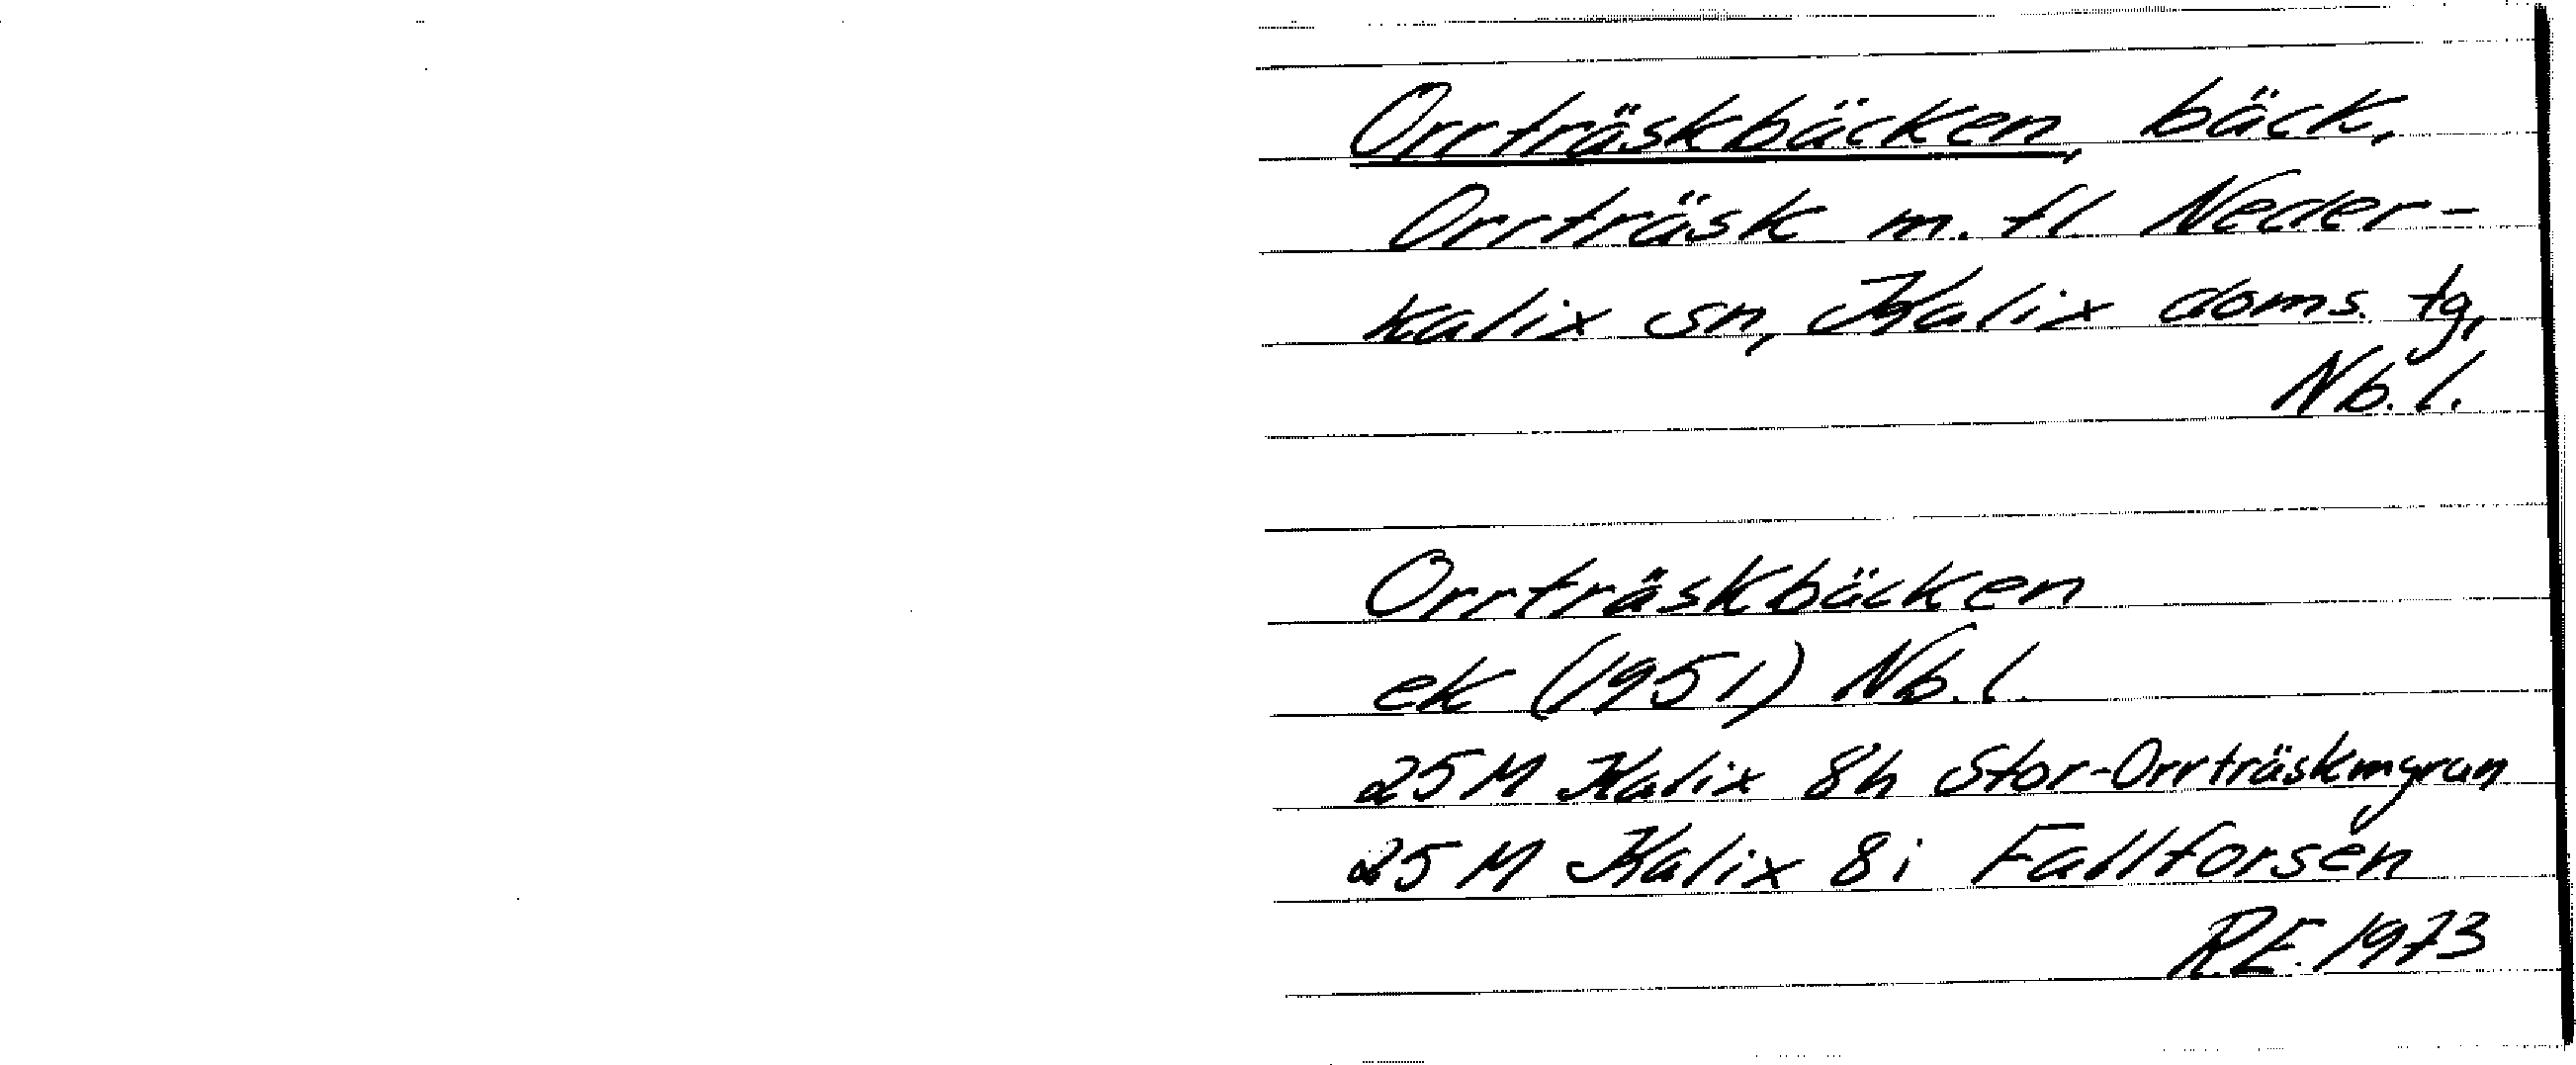 Orrträskbäcken, bäck,
Orrträsk m. fl. Neder-
kalix sn, Kalix doms. tg,
Nb. l.
Orrträskbäcken
ek (1951) Nb. l.
25 M Kalix 8h Stor-Orrträskmyran
25 M Kalix 8i Fallforsen
R.E. 1973